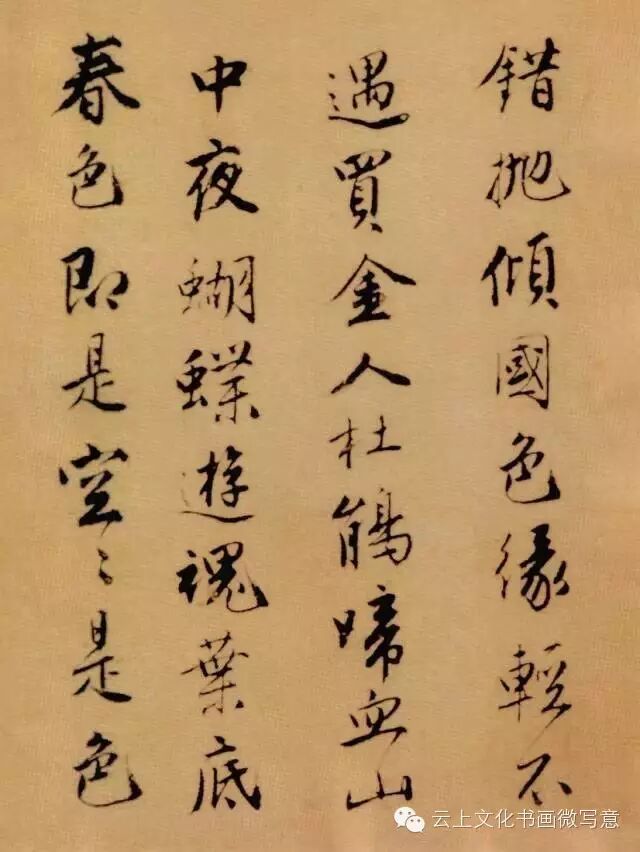 錯抛傾國色緣輕不
遇買金人杜鵑啼血山
中夜蝴蝶遊魂葉底
春色即是空〻是色
云上文化书画微写意